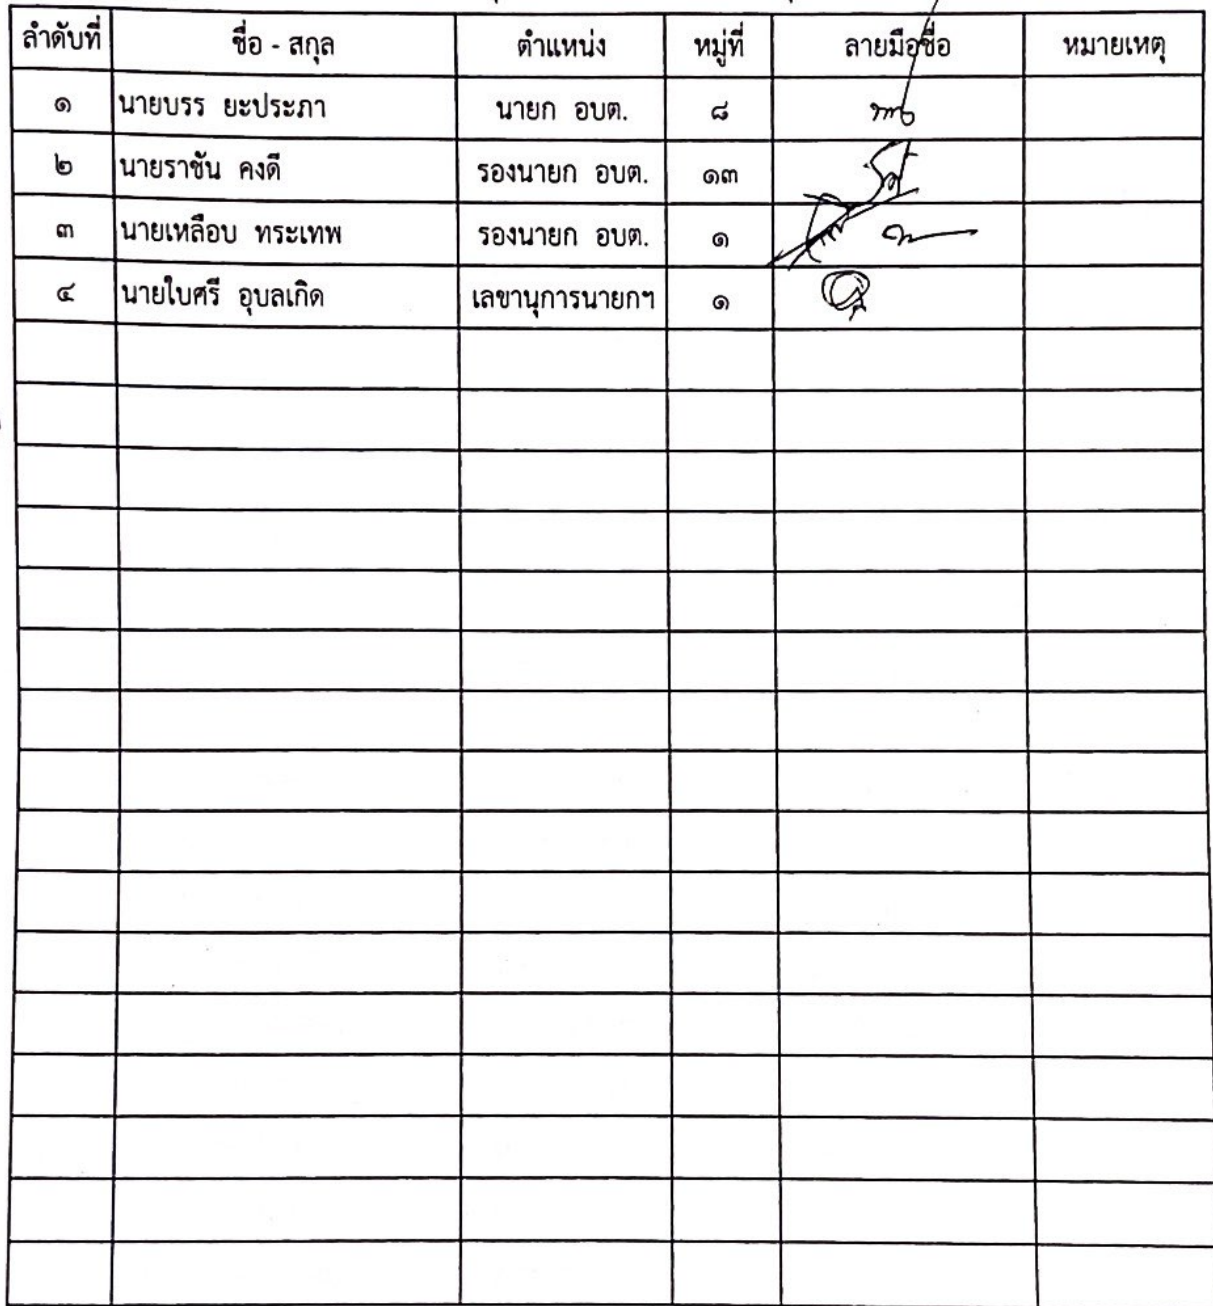 ลำดับที่ ชื่อ - สกุล ตำแหน่ง หมู่ที่ ลายมือชื่อ หมายเหตุ
๑ นายบรร ยะประภา นายก อบต. ๘
๒ นายราชัน คงดี รองนายก อบต. ๑๓
๓ นายเหลือบ ทระเทพ รองนายก อบต. ๑
๔ นายใบศรี อุบลเกิด เลขานุการนายกฯ ๑